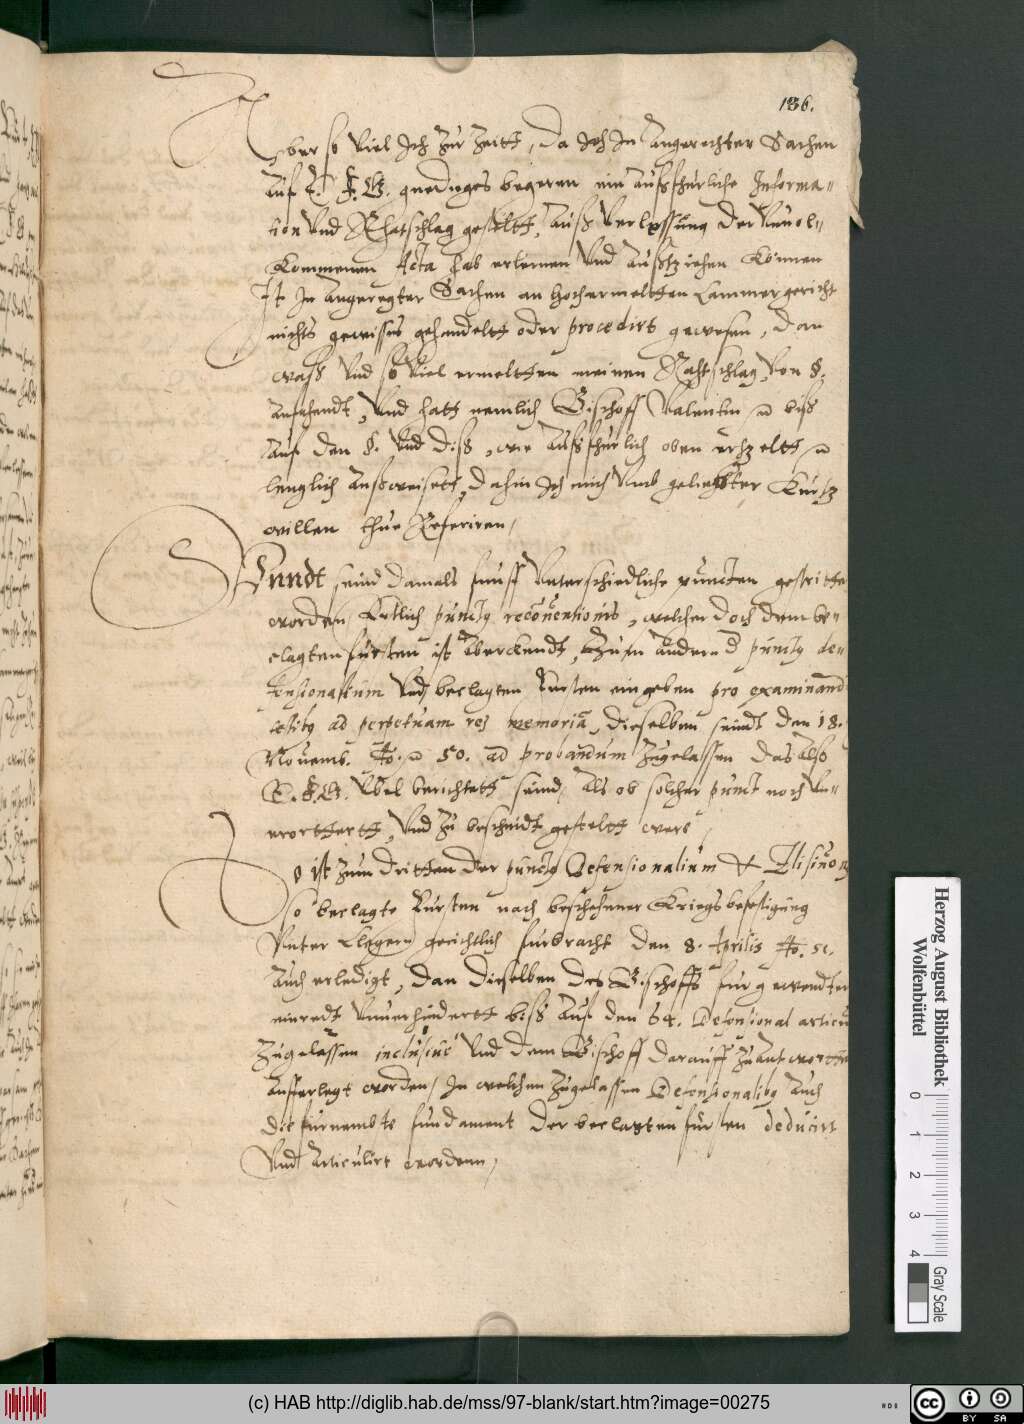 136.
Aber so viel Ich zur Zeitt, da Ich In angerechter Sachen
Auf E. F. G. gnediges begeren ein Außfhurliche Informa-
tion Vnd Rhatschlag gestellt, Auß Verlessung der Vnuol-
Kommenen Acta hab erlernen Vnd Außziehen Können
Ist In angeregter Sachen an hochermeltten Cammergericht
nichts gewisses gehandeltt oder procedirt gewesen, dan
waß Vnd so Viel ermeltten meinen Rathschlag, Von §.
Anfahendt, Vnd hatt nemlich Bischoff Valentin biß
Auf den §. Vnd diß, wie Außfhurlich oben erzeltt
lenglich Außweisett, dahin Ich mich Vmb geliebter Kurtz
willen thue Referiren,
Vnndt seind damals funff Vnterschiedliche puncten gestritten
worden Erstlich punctus reconuentionis, welcher doch dem be-
clagten fursten ist Aberckendt, Zum Andernn punctus de-
fensionalium Vnd beclagten Fursten eingeben pro examinand
testibus ad perpetuam rei memoriã, dieselben seindt den 18.
Nouemb. Ao. 50. ad probandum Zugelassen das Also
E. F. G. Vbel berichtett seind, Als ob solcher punct noch Vn-
erorttertt, Vnd Zu bescheidt gestellt were,
So ist zum dritten der punctus Defensionalium et Elisiuorum
so beclagte Fursten nach beschehener Kriegsbefestigung
Vnter Clegern gerichtlich furbracht den 8. Aprilis Ao. 51.
Auch erledigt, dan dieselben des Bischoffs furgewendter
einredt Vnuerhindertt biß Auf den 64. Defensional articul
Zugelassen inclusiue Vnd dem Bischoff darauff Zu Antwortten
Aufferlegt worden, In welchen Zugelassen Defensionalibus Auch
die furnembste fundament der beclagten fursten deducirt
Vnd Articulirt worden,
Herzog August Bibliothek
Wolfenbüttel
0 1 2 3 4
Gray Scale
(c) HAB http://diglib.hab.de/mss/97-blank/start.htm?image=00275
cc BY SA